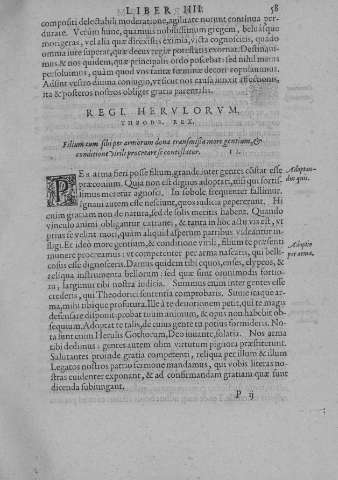 LIBER IIII. 58
compositi delectabili moderatione, agilitate norunt continua perdurare. Verum hunc, quamuis nobilissimum gregem, beluasque
morigeras, vel alia quæ direxistis eximia, victa cognoscitis, quado
omnia iure superat, quæ decus regiæ potestatis exornat. Destinauimus & nos quidem, quæ principalis ordo poscebat: sed nihil maius
persoluimus, quàm quod vos tantæ fœminæ decori copulauimus.
Adsint vestro diuina coniugio, vt sicut nos causa iunxit affectionis,
ita & posteros nostros obliget gratia parentalis.
REGI HERVLORVM,
THEODE. REX.
Filium eum sibi per armorum dona transmissa more gentium, &
conditione virili procreare se contestatur. II.
PER arma fieri posse filium, grande inter gentes cõstat esse
præconium. Quia non est dignus adoptari, nisi qui fortissimus meretur agnosci. In sobole frequenter fallimur.
ignaui autem esse nesciunt, quos iudicia pepererunt. Hi
enim gratiam non de natura, sed de solis meritis habent. Quando
vinculo animi obligantur extranei, & tanta in hoc actu vis est, vt
prius se velint mori, quàm aliquid asperum patribus videantur infligi. Et ideò more gentium, & conditione virili, filium te præsenti
munere procreamus: vt competenter per arma nascaris, qui bellicosus esse dignosceris. Damus quidem tibi equos, enses, clypeos, &
reliqua instrumenta bellorum: sed quæ sunt omnimodis fortiora, largimur tibi nostra iudicia. Summus enim inter gentes esse
crederis, qui Theodorici sententia comprobaris. Sume itaque arma, mihi tibique profutura. Ille à te deuotionem petit, qui te magis
defensare disponit: probat tuum animum, & opus non habebit obsequium. Adoptat te talis, de cuius gente tu potius formideris. Nota sunt enim Herulis Gothorum, Deo iuuante, solatia. Nos arma
tibi dedimus: gentes autem olim virtutum pignora præstiterunt.
Salutantes proinde gratia competenti, reliqua per illum & illum
Legatos nostros patrio sermone mandamus, qui vobis literas nostras euidenter exponant, & ad confirmandam gratiam quæ sunt
dicenda subiungant.
Adoptandus quis.
Adoptio
per arma.
P ij